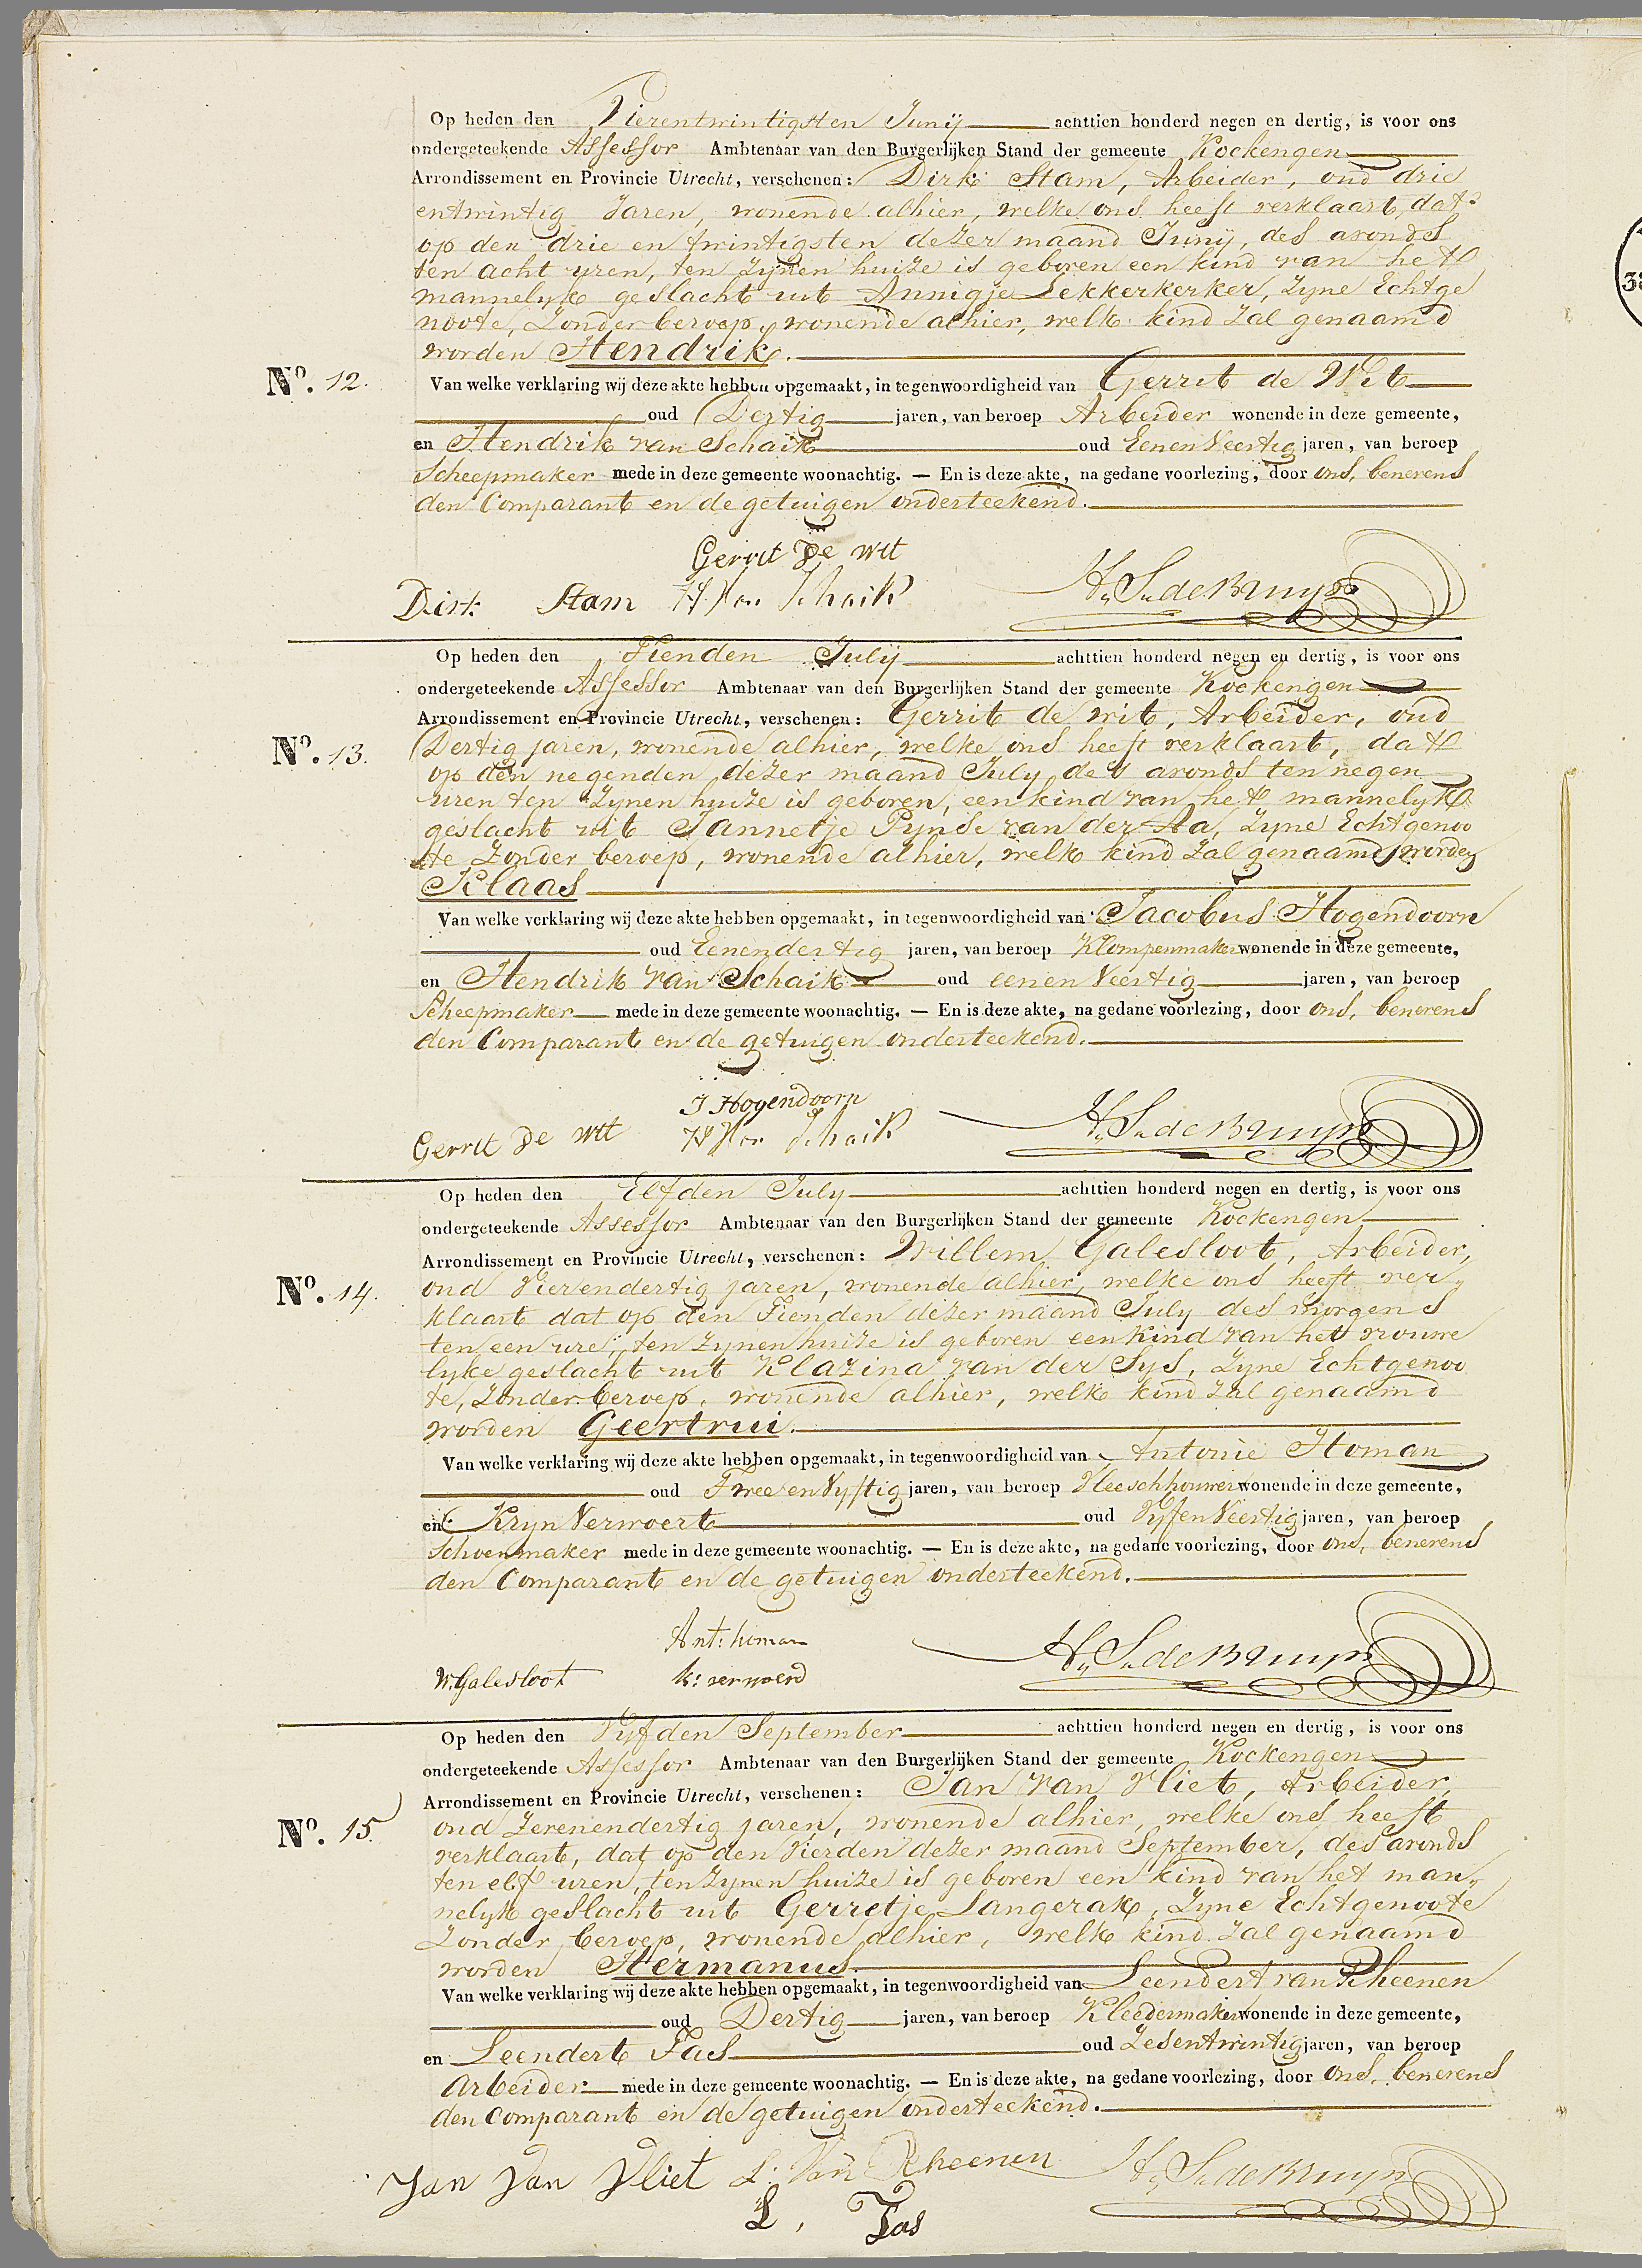 Op heden den Vierentwintigsten Junij achttien honderd negen en dertig, is voor ons
ondergeteekende Assessor Ambtenaar van den Burgerlijken Stand der gemeente Kockengen
Arrondissement en Provincie Utrecht, verschenen: Dirk Stam, Arbeider, oud drie
entwintig Jaren, wonende alhier, welke ons heeft verklaart, dat
op den drie en twintigsten dezer maand Junij, des avonds
ten acht uren, ten zynen huize is geboren een kind van het
mannelyk geslacht uit Annigje Lekkerkerker, zyne Echtge
noote, Zonder beroep, wonende alhier, welk kind zal genaamd
worden Hendrik.
No. 12.
Van welke verklaring wij deze akte hebben opgemaakt, in tegenwoordigheid van Gerrit de Wit
oud Dertig jaren, van beroep Arbeider wonende in deze gemeente,
en Hendrik van Schaik oud Eenenveertig jaren, van beroep
Scheepmaker mede in deze gemeente woonachtig. — En is deze akte, na gedane voorlezing, door ons, benevens
den Comparant en de getuigen onderteekend.
Gerrit De wit
Dirk Stam H Van Schaik H. S. de Bruyn
Op heden den Tienden Julij achttien honderd negen en dertig, is voor ons
ondergeteekende Assessor Ambtenaar van den Burgerlijken Stand der gemeente Kockengen
Arrondissement en Provincie Utrecht, verschenen: Gerrit de wit, Arbeider, oud
No. 13.
Dertig jaren, wonende alhier, welke ons heeft verklaart, dat
op den negenden dezer maand July des avonds ten negen
uren ten zynen huize is geboren, een kind van het mannelyk
geslacht uit Jannetje Pynse van der Aa, zyne Echtgenoo
te Zonder beroep, wonende alhier, welk kind zal genaamd worden
Klaas
Van welke verklaring wij deze akte hebben opgemaakt, in tegenwoordigheid van Jacobus Hogendoorn
oud Eenendertig jaren, van beroep Klompenmaker wonende in deze gemeente,
en Hendrik van Schaik oud eenenveertig jaren, van beroep
Scheepmaker mede in deze gemeente woonachtig. — En is deze akte, na gedane voorlezing, door ons, benevens
den Comparant en de getuigen onderteekend.
J Hogendoorn
Gerrit De wit H Van Schaik H. S. de Bruyn
Op heden den Elfden July achttien honderd negen en dertig, is voor ons
ondergeteekende Assessor Ambtenaar van den Burgerlijken Stand der gemeente Kockengen
Arrondissement en Provincie Utrecht, verschenen: Willem Galesloot, Arbeider,
No. 14.
oud Vierendertig jaren, wonende alhier, welke ons heeft ver
klaart dat op den Tienden dezer maand July des morgens
ten een ure, ten zynen huize is geboren een kind van het vrouwe
lyke geslacht uit Klazina van der Sys, zyne Echtgenoo
te, Zonder beroep, wonende alhier, welk kind zal genaamd
worden Geertrui.
Van welke verklaring wij deze akte hebben opgemaakt, in tegenwoordigheid van Antonie Homan
oud Twee en Vyftig jaren, van beroep Vleeschhouwer wonende in deze gemeente,
en Kryn Verwoert oud VyfenVeertig jaren, van beroep
Schoenmaker mede in deze gemeente woonachtig. — En is deze akte, na gedane voorlezing, door ons, benevens
den Comparant en de getuigen onderteekend.
Ant: homan
W. Galesloot k: verwoerd H. S. de Bruyn
Op heden den Vyfden September achttien honderd negen en dertig, is voor ons
ondergeteekende Assessor Ambtenaar van den Burgerlijken Stand der gemeente Kockengen
Arrondissement en Provincie Utrecht, verschenen: Jan van Vliet, Arbeider,
No. 15.
oud Zevenendertig jaren, wonende alhier, welke ons heeft
verklaart, dat op den Vierden dezer maand September, des avonds
ten elf uren, ten zynen huize is geboren een kind van het man
nelyk geslacht uit Gerretje Langerak, Zyne Echtgenoote
Zonder beroep, wonende alhier, welk kind zal genaamd
worden Hermanus.
Van welke verklaring wij deze akte hebben opgemaakt, in tegenwoordigheid van Leendert van Rheenen
oud Dertig jaren, van beroep Kleedermaker wonende in deze gemeente,
en Leendert Tas oud Zesentwintig jaren, van beroep
Arbeider mede in deze gemeente woonachtig. — En is deze akte, na gedane voorlezing, door ons, benevens
den Comparant en de getuigen onderteekend.
Jan van Vliet L. Van Rheenen H. S. de Bruyn
L, Tas